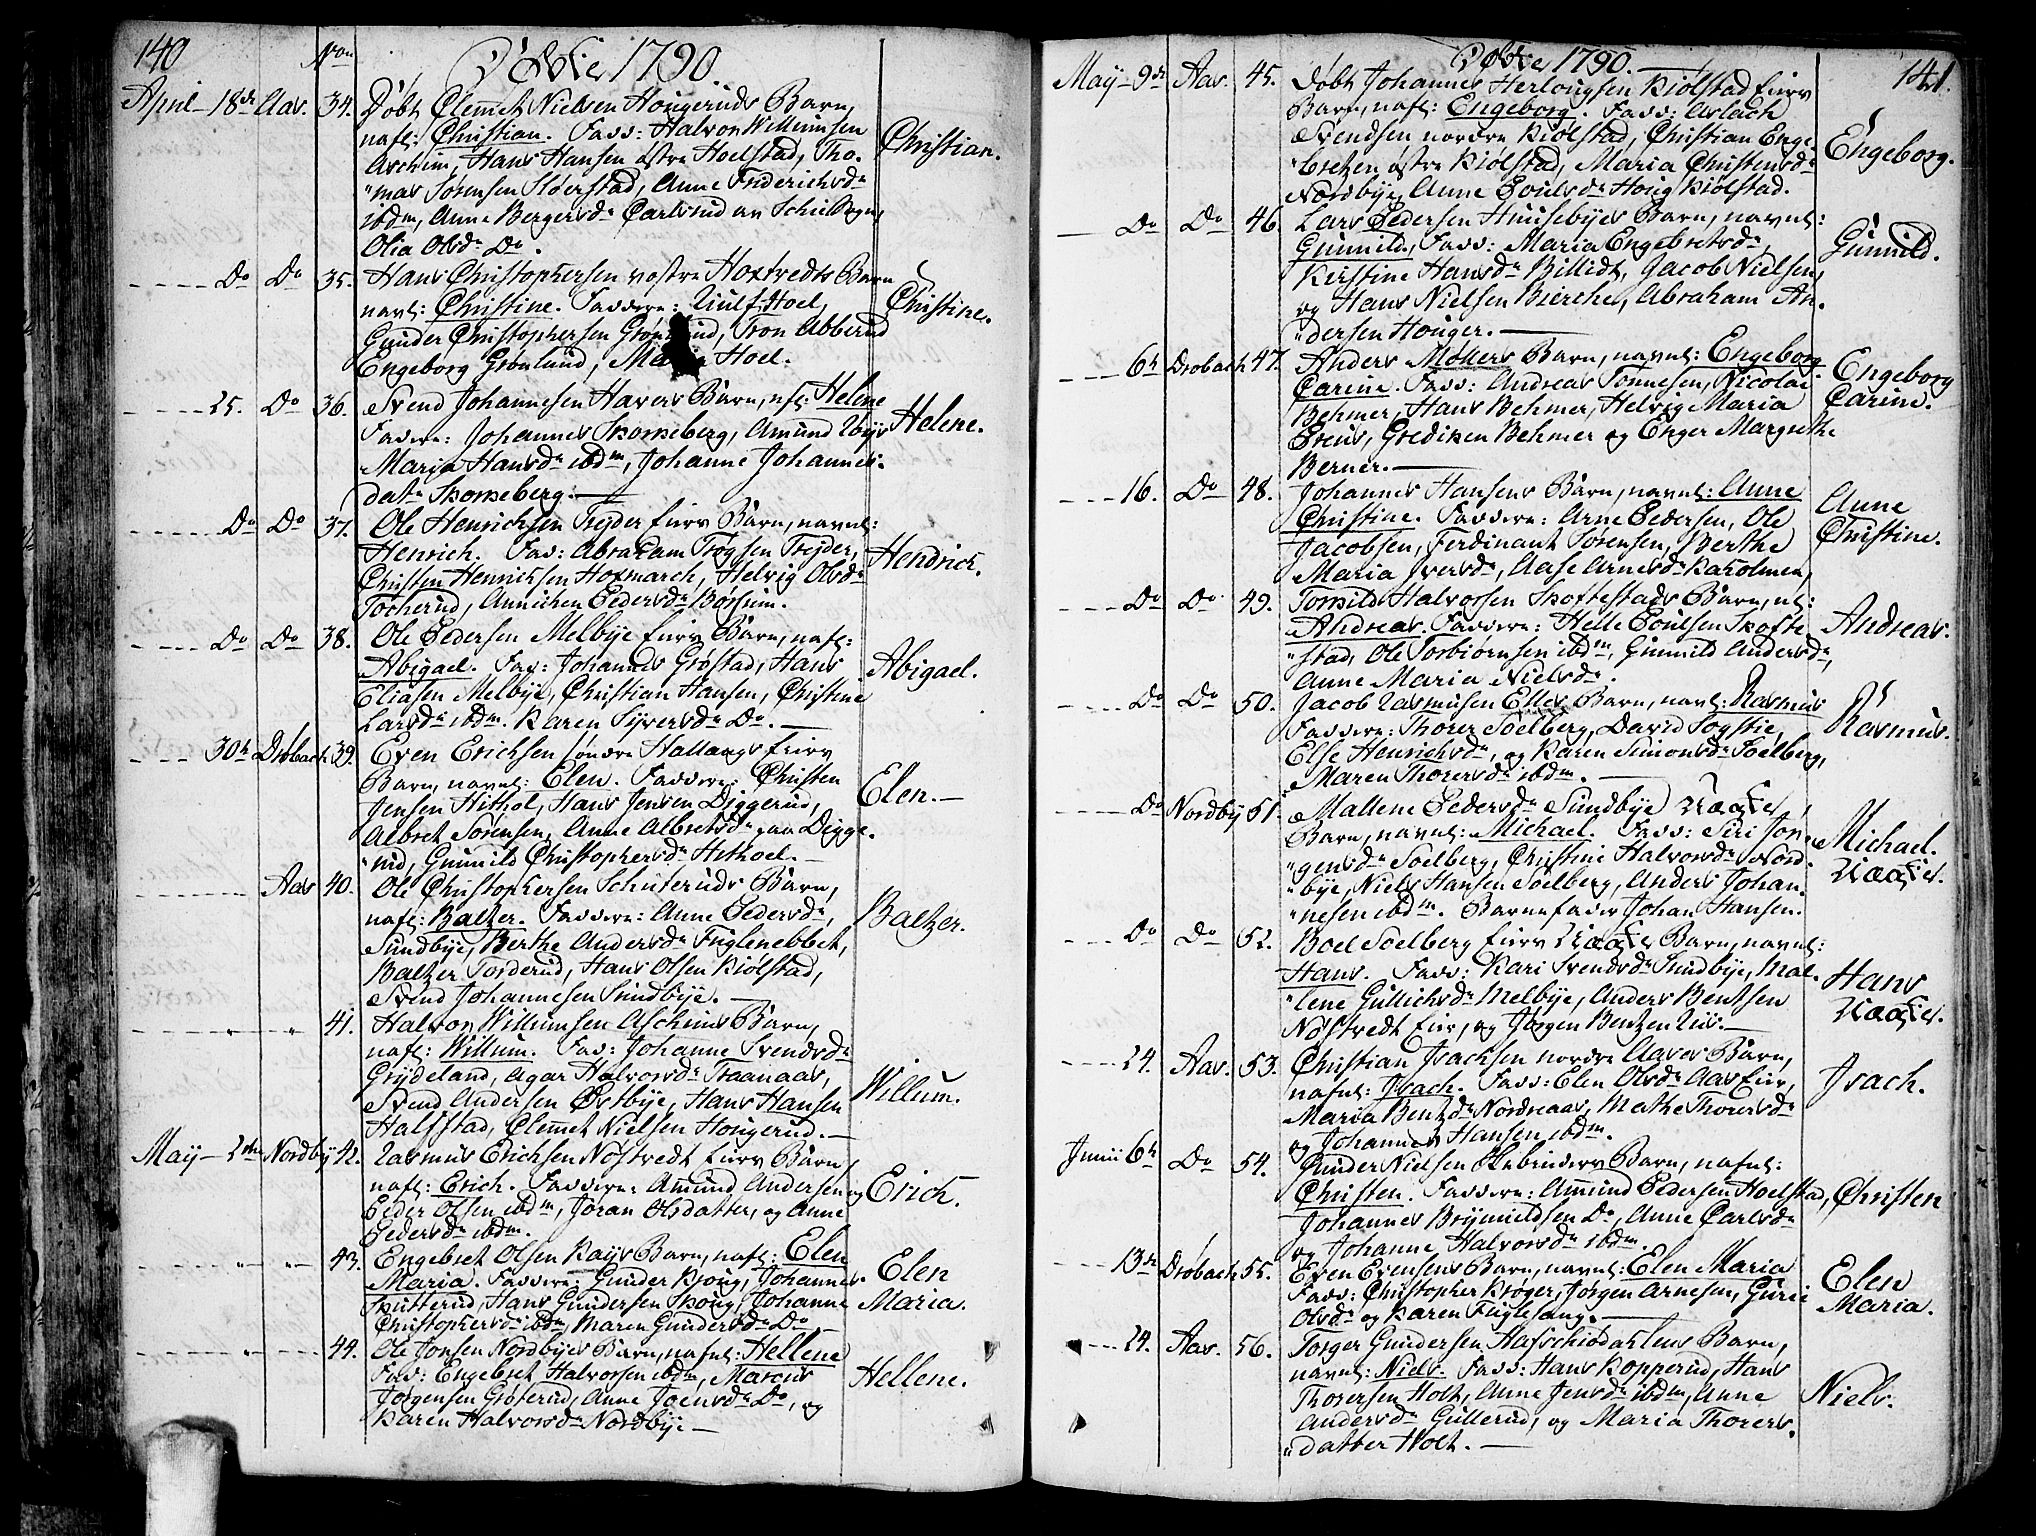 140
Nron
Døbte 1790.
April – 18de Aas. 34. Døbt Clemet Nielsen Hougeruds Barn,
nafl: Christian. Fadd: Halvor Willumsen
Aschim, Hans Hansen østre Hoelstad, Tho-
"mas Sørensen Støerstad, Anne Friderichsdr
ibdm, Anne Bergersdr Carlsrud av Schie Sogn,
Olia Olsdr Do.
Christian.
Do Do 35. Hans Christophersen vestre Hoxtvedts Barn
navl: Christine. Faddere: Uulf Hoel,
Gunder Christophersen Grønlund, Tron Abberud
Engeborg Grønlund, Maria Hoel.
Christine.
25. Do 36. Svend Johannesen Haver Barn, nfl: Helene
Faddere: Johannes Skorkeberg, Amund
Maria Hansdr ibdm, Johanne Johannes-
datr Skorkeberg.
Helene.
Do Do 37. Ole Henrichsen Treider Eiers Barn, navnl:
Henrich. Fad: Abraham Trøgsen Treider,
Christen Henrichsen Hofmarch, Helvig Olsdr
Tocherud, Annichen Pedersdr Børsum.
Hendrich.
Do Do 38. Ole Pedersen Melbye Eiers Barn, nafl:
Abigael. Fad: Johannes Grøstad, Hans
Eliasen Melbye, Christian Hansen, Christine
Larsdr ibdm. Karen Syversdr Do.
Abigael.
30te Drøbach 39. Even Erichsen søndre Hallangs Eiers
Barn, navnl: Elen. Faddere: Christen
Jensen Hithol, Hans Jensen Diggerud,
Albret Sørensen, Anne Albretsdr paa Digge-
"rud, Gunnild Christophersdr Hithoel.
Elen.
Aas 40. Ole Christophersen Schuteruds Barn,
nafl: Baltzer. Faddere: Anne Pedersdr
Sundbye, Berthe Andersdr Fuglenebbet,
Baltzer Torderud, Hans Olsen Kiølstad,
Svend Johannesen Sundbye.
Baltzer.
" " 41. Halvor Willumsen Aschims Barn,
nafl: Willum. Fad: Johanne Svendsdr
Grydeland, Agar Halvorsdr Traanaas,
Svend Andersen Østbye, Hans Hansen
Halfstad, Clemet Nielsen Hougerud.
Willum.
May – 2den Nordby 42. Rasmus Erichsen Nøstvedt Eiers Barn,
nafl: Erich. Faddere: Amund Andersen og
Peder Olsen ibdm, Joran Olsdatter, og Anne
Pedersdr ibdm.
Erich.
" " 43. Engebret Olsen Kays Barn, nafl: Elen
Maria. Faddere: Gunder Skoug, Johannes
Skutterud, Hans Gundersen Skoug, Johanne
Christophersdr ibdm, Maren Gundersdr Do
Elen
Maria.
" " 44. Ole Jonsen Nordbyes Barn, nafnl: Hellene
Fad: Engebret Halvorsen ibdm, Marcus
Jørgensen Groterud, Anne Joensdr Do, og
Karen Halvorsdr Nordbye
Hellene.
Døbte 1790.
141.
May – 9de Aas. 45. Døbt Johannes Herlougsen Kiølstad Eiers
Barn, nafl: Engeborg. Fadd: Aslach
Svendsen nordre Kiølstad, Christian Enge-
"bretsen østre Kiølstad, Maria Christensdr
Nordbye, Anne Poulsdr Houg Kiølstad.
Engeborg.
Do Do 46. Lars Pedersen Huusebyes Barn, navnl:
Gunnild, Fadd: Maria Engebretsdr,
Kirstine Hansdr Billidt, Jacob Nielsen,
og Hans Nielsen Bierche, Abraham An-
"dersen Houger.
Gunnild.
6te Drøbach 47. Anders Møllers Barn, navnl: Engeborg
Carine. Fadd: Andreas Tønnesen, Nicolai
Behmer, Hans Behmer, Helvig Maria
Greus, Grediken Behmer og Enger Margrethe
Berner.
Engeborg
Carine.
16. Do 48. Johannes Hansens Barn, navnl: Anne
Christine. Faddere: Arne Pedersen, Ole
Jacobsen, Ferdinant Sørensen, Berthe
Maria Iversdr, Aase Arnesdr Kaholmen,
Anne
Christine.
Do Do 49. Torkild Halvorsen Skoftestads Barn, nl:
Andreas. Faddere: Helle Poulsen Skofte
"stad, Ole Torbiørnsen ibdm, Gunnild Andersdr,
Anne Maria Nielsdr.
Andreas.
Do Do 50. Jacob Rasmusen Elles Barn, navl: Rasmus
Faddere: Thorer Soelberg, David Sogstie,
Else Henrichsdr, og Karen Simonsdr Soelberg,
Maren Thorersdr ibdm.
Rasmus.
Do Nordby 51. Mallene Pedersdr Sundbye Uægte
Barn, navnl: Michael. Fadd: Siri Jør-
"gensdr Soelberg, Christine Halvorsdr Nord-
"bye, Niels Hansen Soelberg, Anders Johan-
"nesen ibdm. Barnefader Johan Hansen.
Michael.
Uægte.
Do Do 52. Boel Soelberg Eiers Uægte Barn, navnl:
Hans. Fadd: Kari Svendsdr Sundbye, Mal-
"lene Gullichsdr Melbye, Anders Bentsen
Nøstvedt Eier, og Jørgen Bentzen Uis.
Hans
Uægte.
24. Aas. 53. Christian Isachsen nordre Aases Barn,
nafnl: Isach. Fadd: Elen Olsdr Aas Eier,
Maria Bentzdr Nordreaas, Mathe Thorersdr
og Johannes Hansen ibdm.
Isach.
Junii 6te Do 54. Gunder Nielsen Barn, nafnl:
Christen. Faddere: Amund Pedersen Hoelstad,
Johannes Brynnildsen Do, Anne Carlsdr
og Johanne Halvorsdr ibdm.
Christen
13de Drøbach 55. Even Evensens Barn, navnl: Elen Maria
Fadd: Christopher Krøger, Jørgen Arnesen, Guri
Olsdr og Karen Fuglesang.
Elen
Maria.
24. Aas. 56. Torger Gundersen Hasschiodahlens Barn,
navnl: Niels. Fadd: Hans Kopperud, Hans
Thorersen Holt, Anne Jensdr ibdm, Anne
Andersdr Gullerud, og Maria Thorers-
"datter Holt.
Niels.